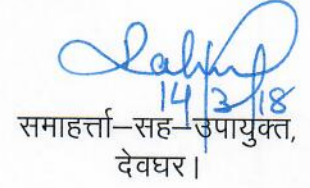 14/3/18
समाहर्त्ता–सह–उपायुक्त,
देवघर।